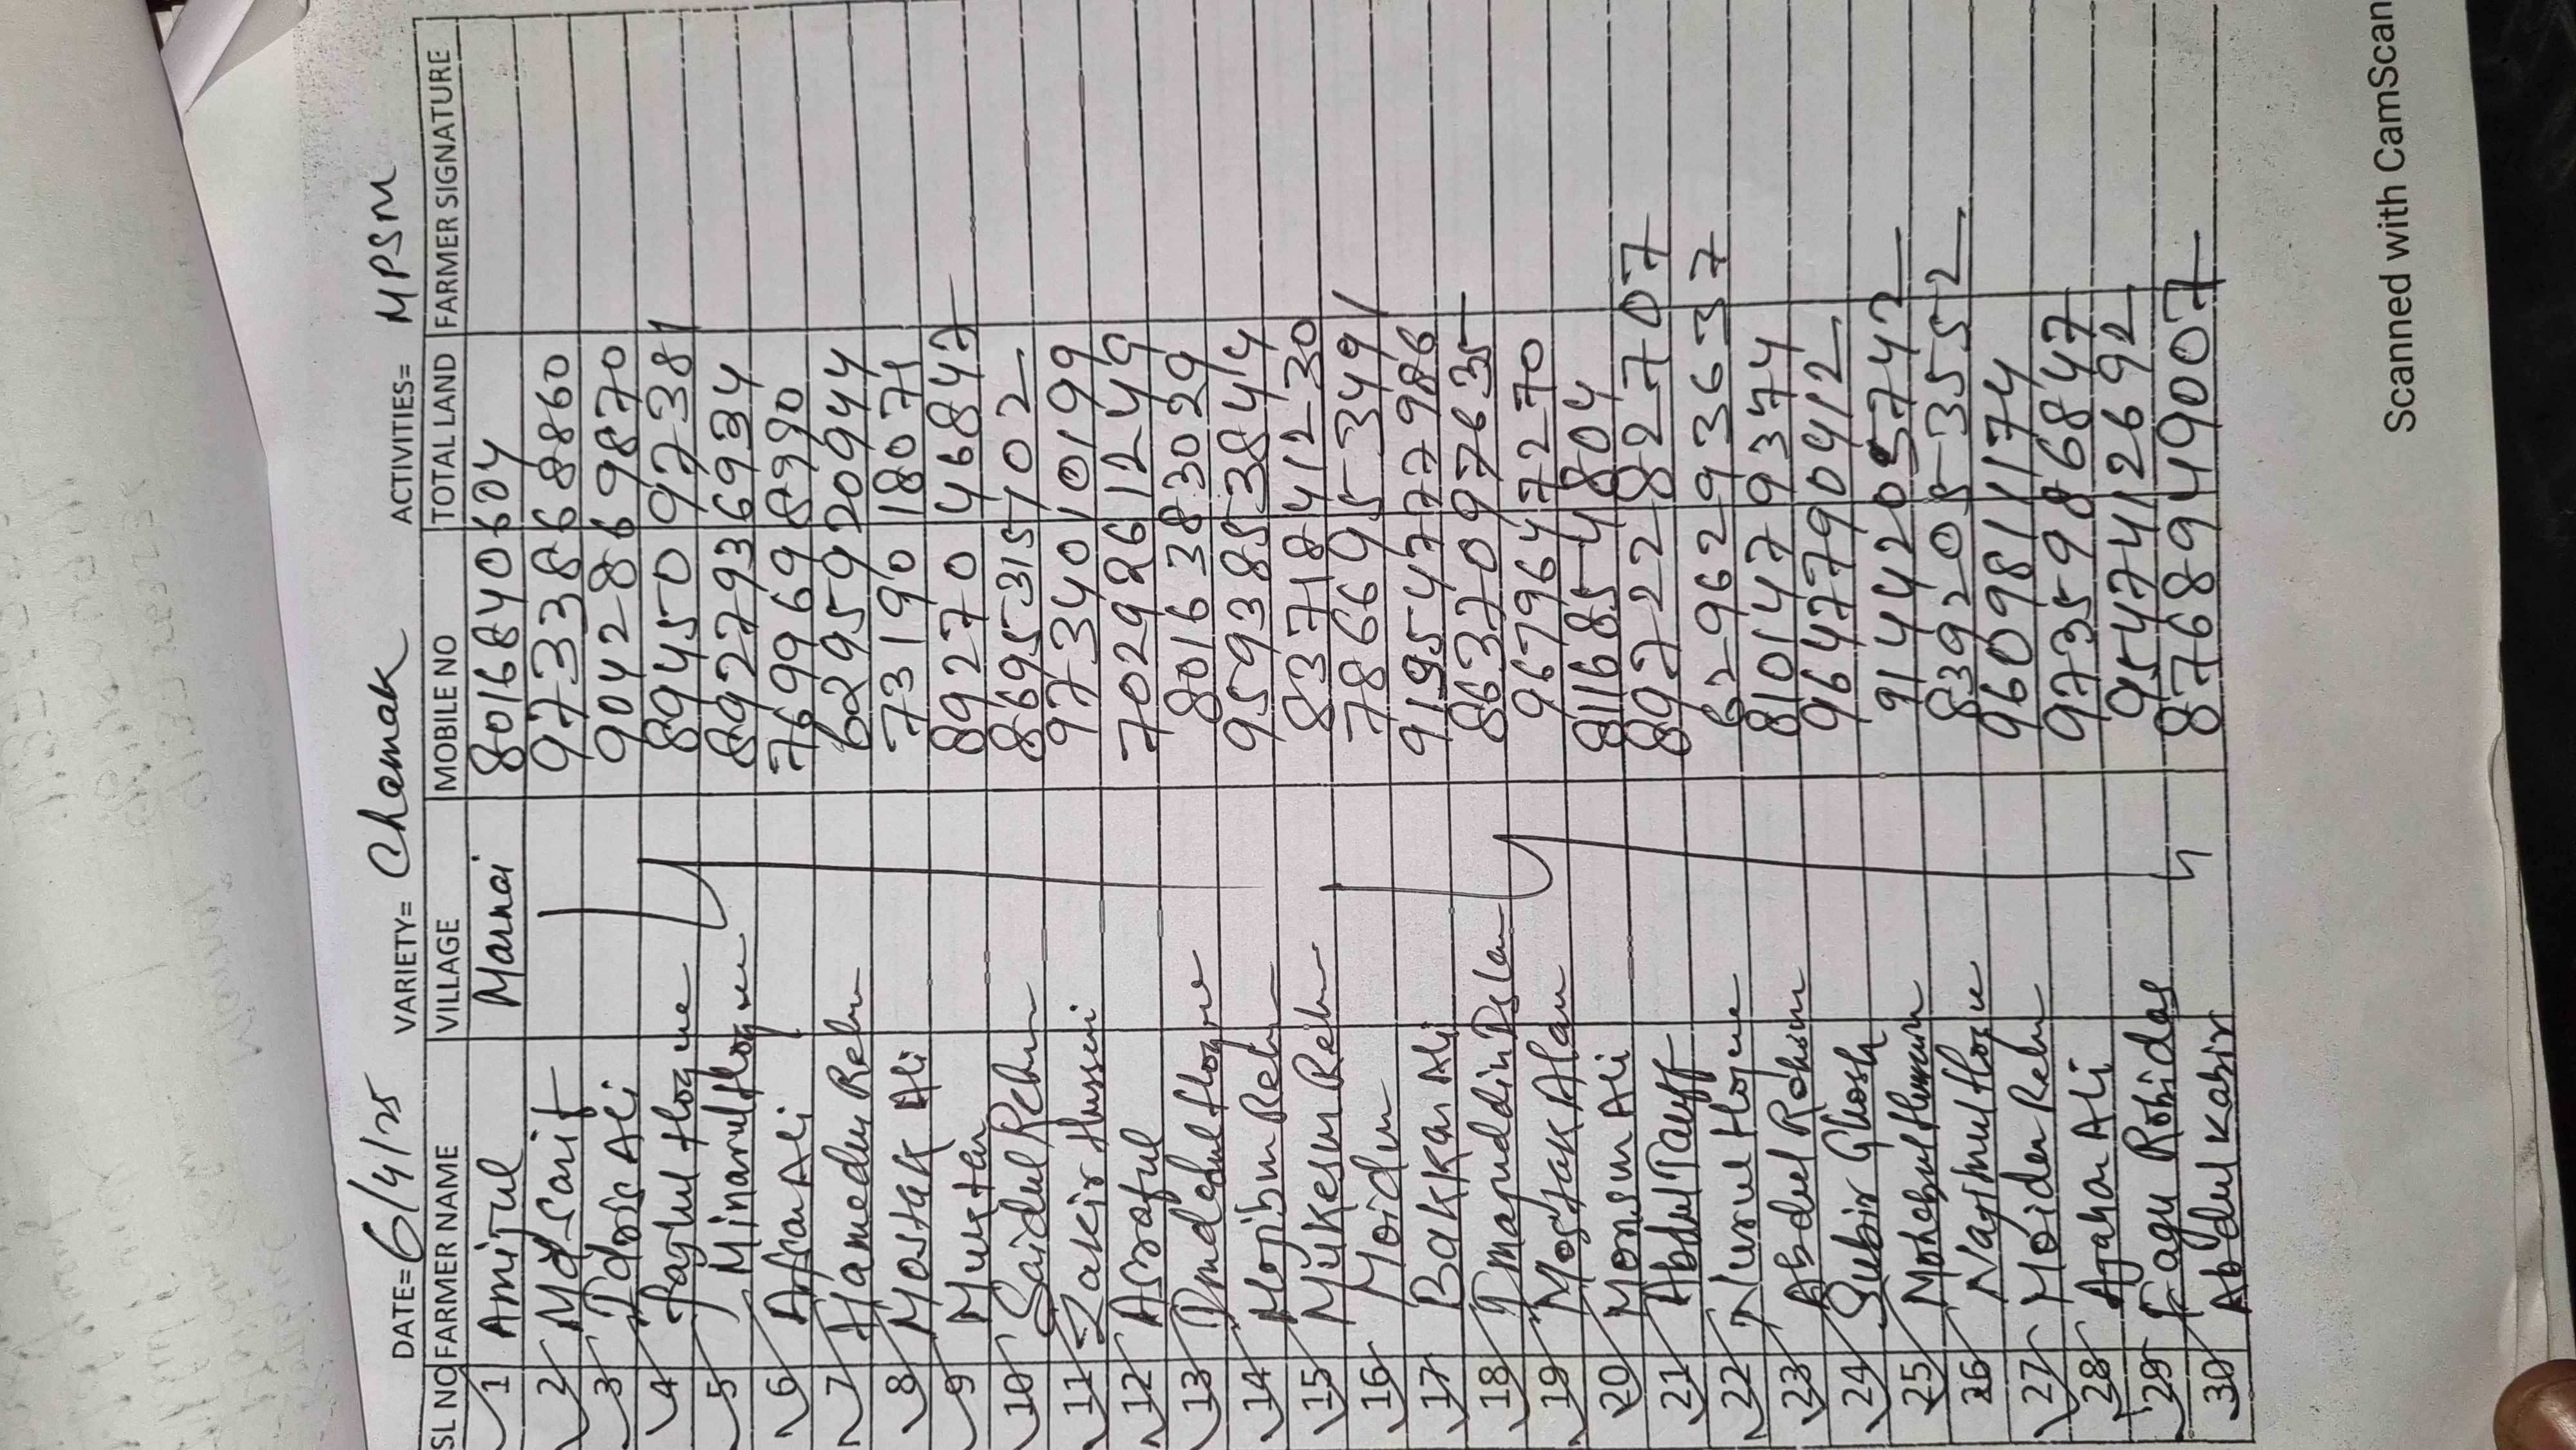 DATE= 6/4/25 VARIETY= Chamak ACTIVITIES= MPSM
SL NO FARMER NAME VILLAGE MOBILE NO TOTAL LAND FARMER SIGNATURE
1 Amijul Marnai 8016840604
2 Md Sarif 9733868860
3 Idris Ali 9042869870
4 Fajlul Hoque 8945097381
5 Minarul Hoque 8927936934
6 Afsar Ali 7699698990
7 Hamedur Rehn 6295920944
8 Mostak Ali 7319018071
9 Muktar 8927046847
10 Saidul Rehn 8695315102
11 Zakir Hussain 9734010199
12 Asraful 7029261249
13 Hoque 8016383029
14 Mojibur Rehn 9593853844
15 Mukesur Rehn 8371841230
16 Moidur 7866953491
17 Bakkar Ali
18 Islam 8637097635
19 Mostak Alam 9679647270
20 Monsur Ali 8116854804
21 Abdul 8972282707
22 Nurul Hoque 6296293637
23 Abdul Rohim 8101479374
24 Subir Ghosh 9647790412
25 9144205742
26 Najimul Hoque 8392053552
27 Moidur Rehn 9609811174
28 Ajahar Ali 9735986847
29 Fagu Robidas 9547412692
30 Abdul Kabir 8768949007
Scanned with CamScan